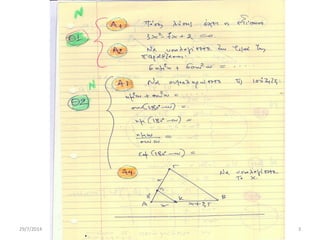 N
Θ1
Α1 Πόσες λύσεις έχει η εξίσωση
3x² - 7x + 2 = 0
Α2 Να υπολογίσετε την τιμή της
παράστασης:
6ημ²ω + 6συν²ω = ...
N
Θ2
Α1 Να συμπληρώσετε
ημ²ω + συν²ω =
συν(180°-ω) =
ημ(180°-ω) =
ημω/συνω =
εφ(180°-ω) =
Γ
Να υπολογίσετε
το x.
Δ
Α
x
Κ
Β
29/7/2014
3